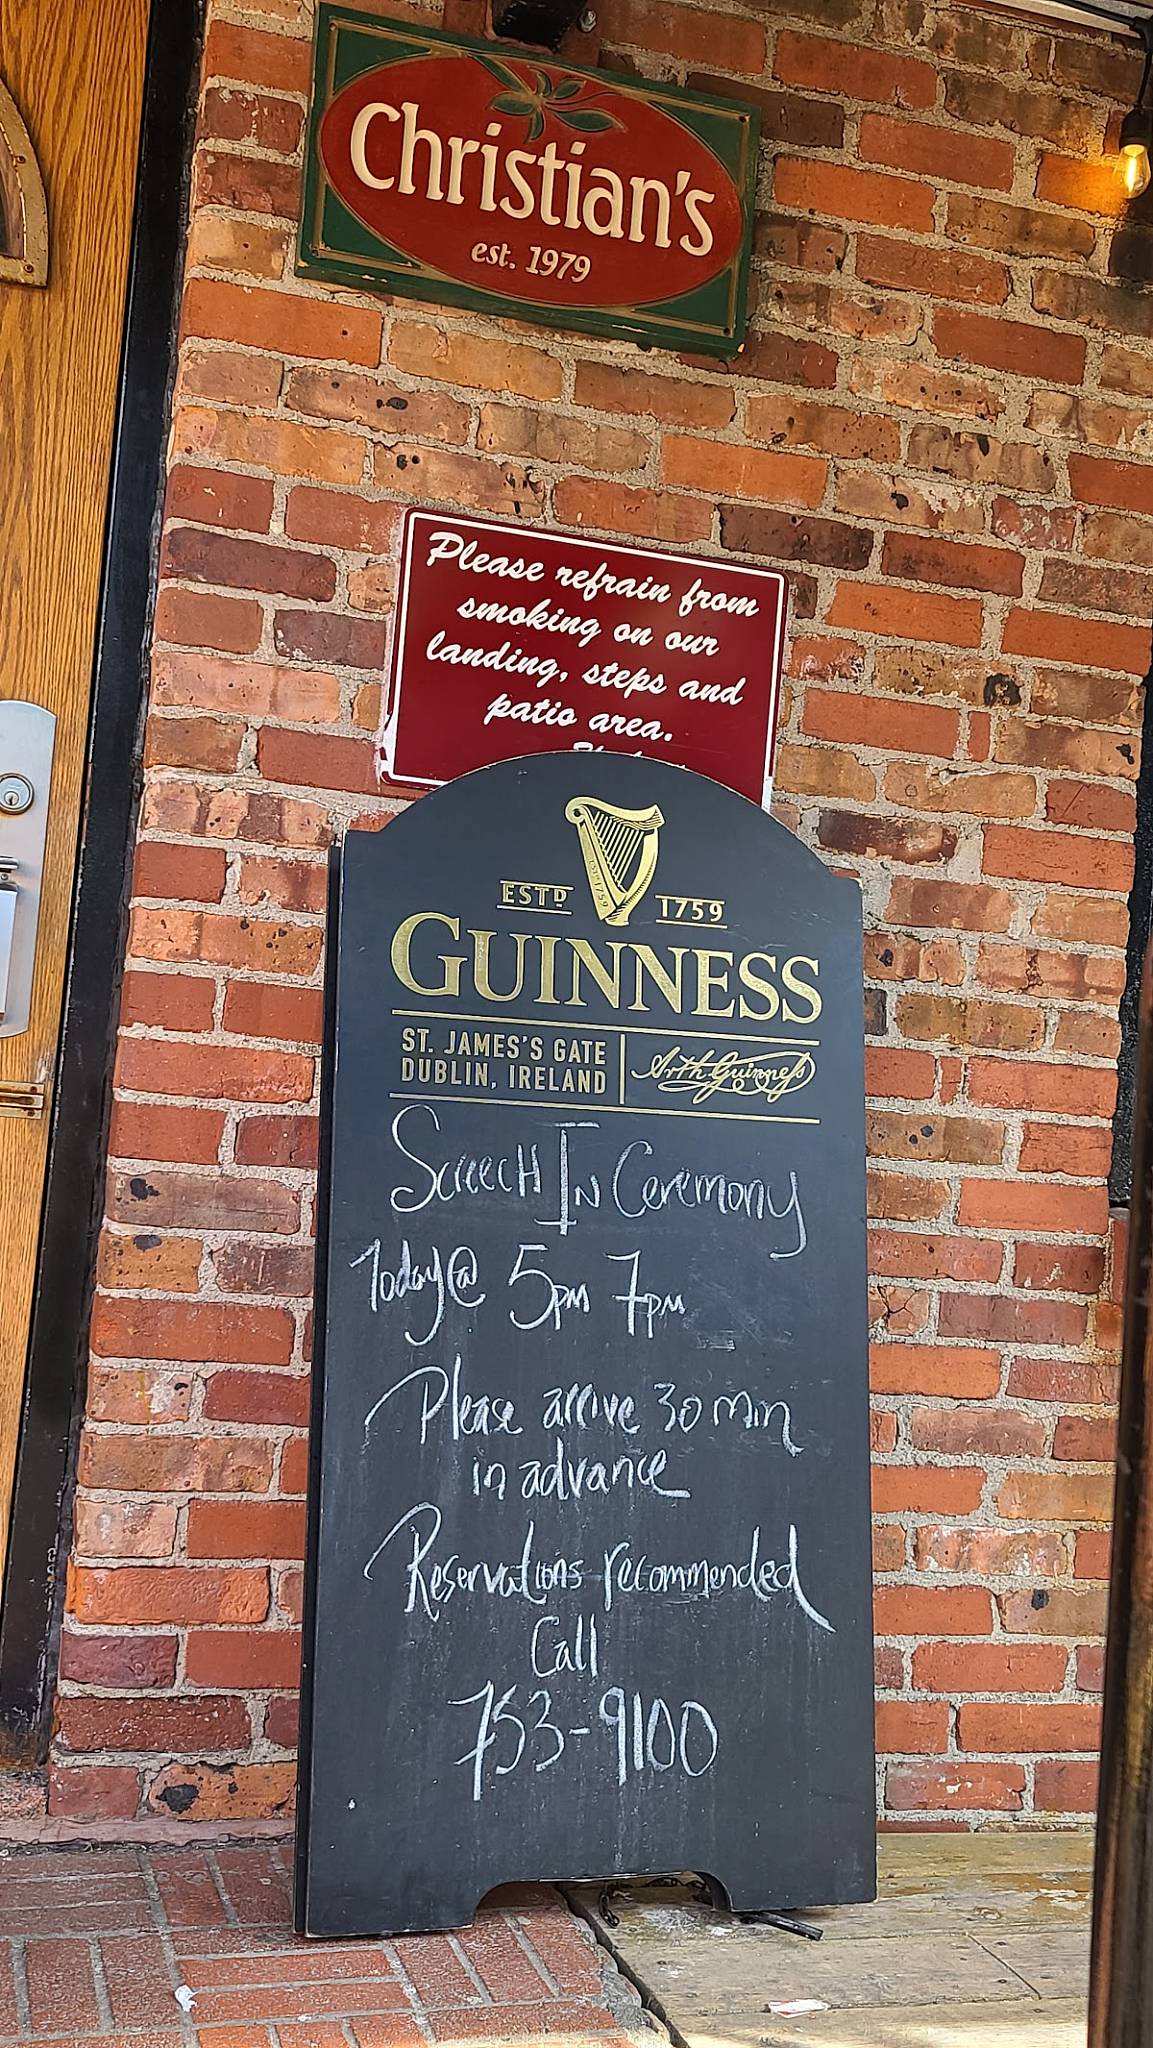 Christian's
est. 1979
Please refrain from
smoking on our
landing, steps and
patio area.
ESTD 1759
GUINNESS
ST. JAMES'S GATE
DUBLIN, IRELAND
Arth Guinness
Screech In Ceremony
Today @ 5pm 7pm
Please arrive 30 min
in advance
Reservations recommended
Call
753-9100